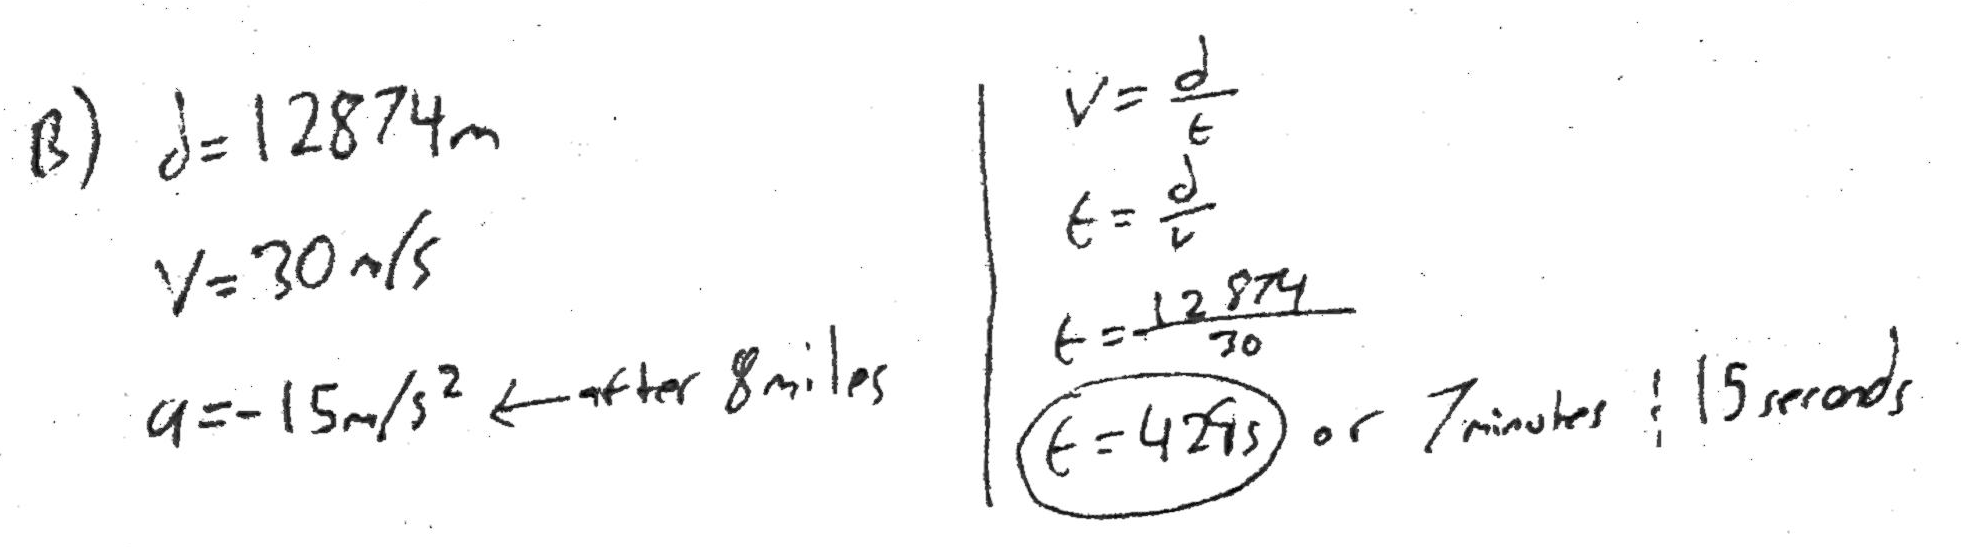 B) d=12874m
v=30m/s
a=-15m/s² ← after 8miles
v=d/t
t=d/v
t=12874/30
t=429s or 7minutes & 15seconds